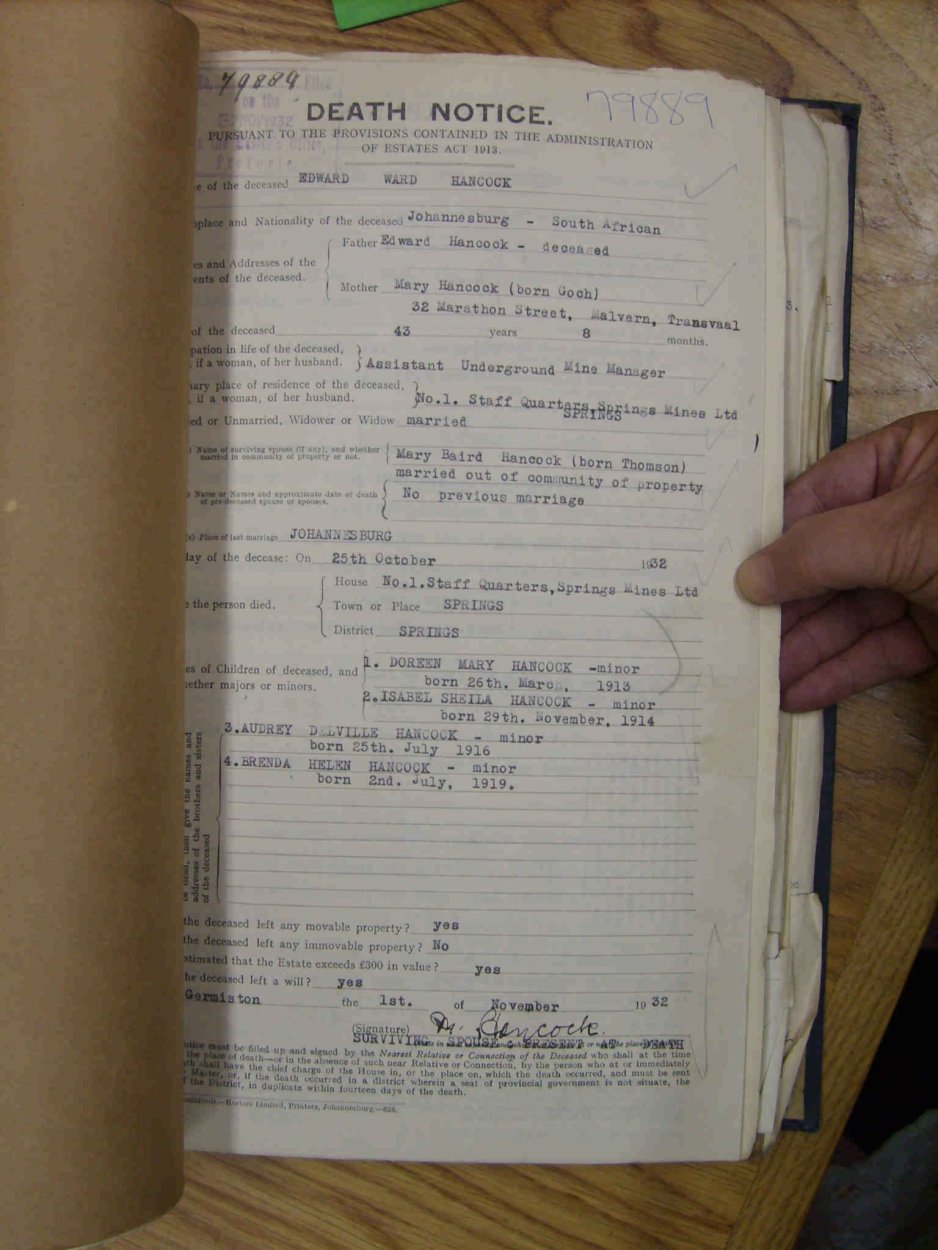 79889
79889
on the
Pretoria
DEATH NOTICE.
PURSUANT TO THE PROVISIONS CONTAINED IN THE ADMINISTRATION
OF ESTATES ACT 1913.
e of the deceased EDWARD WARD HANCOCK
place and Nationality of the deceased Johannesburg - South African
Father Edward Hancock - deceased
es and Addresses of the
ents of the deceased.
Mother Mary Hancock (born Goch)
32 Marathon Street, Malvern, Transvaal
of the deceased 43 years 8 months.
pation in life of the deceased,
, if a woman, of her husband. Assistant Underground Mine Manager
nary place of residence of the deceased,
, if a woman, of her husband. No.1. Staff Quarters, Springs Mines Ltd
SPRINGS
ed or Unmarried, Widower or Widow married
) Name of surviving spouse (if any), and whether
married in community of property or not. Mary Baird Hancock (born Thomson)
married out of community of property
) Name or Names and approximate date of death
of pre-deceased spouse or spouses. No previous marriage
(c) Place of last marriage JOHANNESBURG
ay of the decease: On 25th October 1932
House No.1.Staff Quarters,Springs Mines Ltd
e the person died. Town or Place SPRINGS
District SPRINGS
es of Children of deceased, and 1. DOREEN MARY HANCOCK -minor
hether majors or minors. born 26th. March, 1913
2.ISABEL SHEILA HANCOCK - minor
born 29th. November, 1914
3.AUDREY DELVILLE HANCOCK - minor
born 25th. July 1916
4.BRENDA HELEN HANCOCK - minor
born 2nd. July, 1919.
be dead, then give the names and
addresses of the brothers and sisters
of the deceased
the deceased left any movable property? yes
the deceased left any immovable property? No
stimated that the Estate exceeds £300 in value? yes
he deceased left a will? yes
Germiston the 1st. of November 1932
(Signature) M. Hancock.
SURVIVING SPOUSE : PRESENT AT DEATH
otice must be filled up and signed by the Nearest Relative or Connection of the Deceased who shall at the time
the place of death—or in the absence of such near Relative or Connection, by the person who at or immediately
th shall have the chief charge of the House in, or the place on, which the death occurred, and must be sent
Master, or, if the death occurred in a district wherein a seat of provincial government is not situate, the
f the District, in duplicate within fourteen days of the death.
Limited, Printers, Johannesburg.—